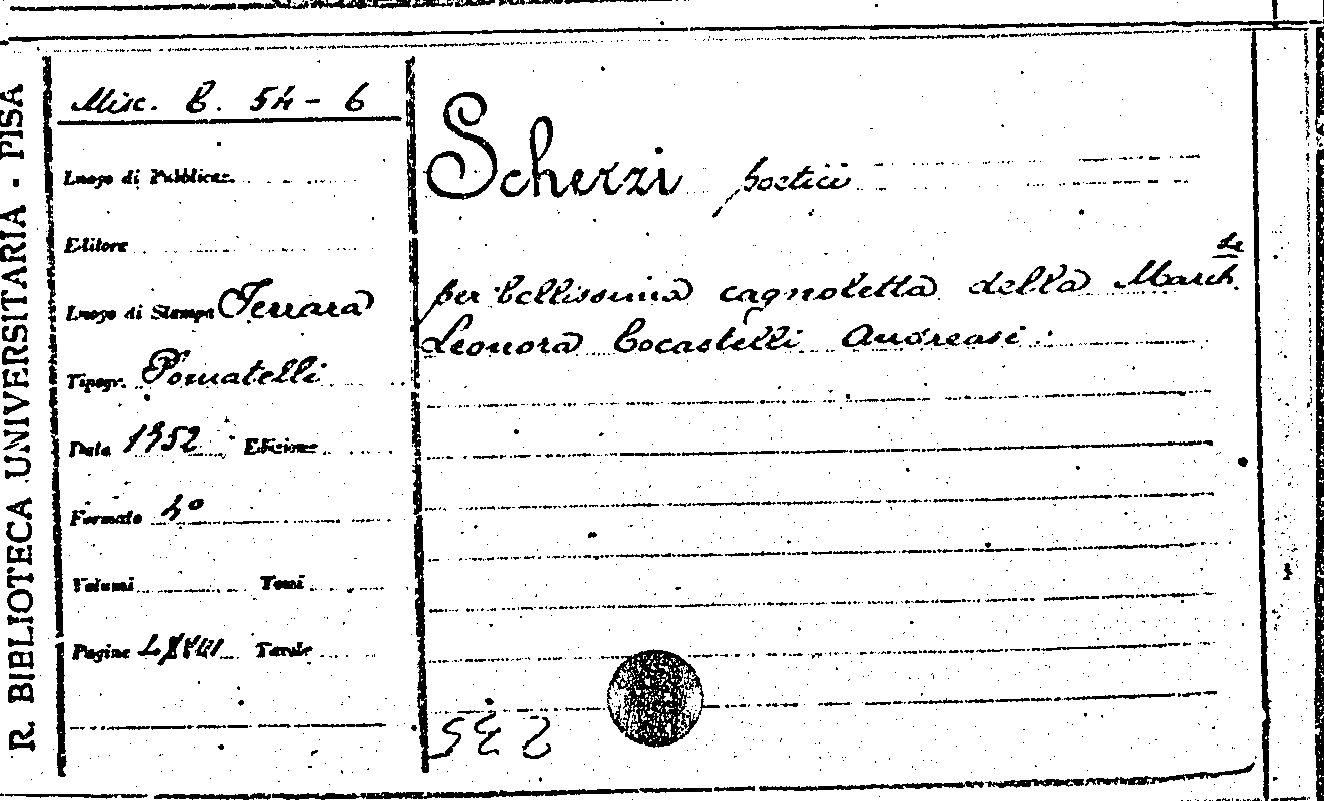 R. BIBLIOTECA UNIVERSITARIA - PISA
Misc. B. 54 - 6
Luogo di Pubblicaz.
Editore
Luogo di Stampa Ferrara
Tipogr. Pomatelli
Data 1752 Edizione
Formato 4º
Volumi Tomi
Pagine Tavole
Scherzi poetici
per bellissima cagnoletta della March.
Leonora Cocastelli Andreasi.